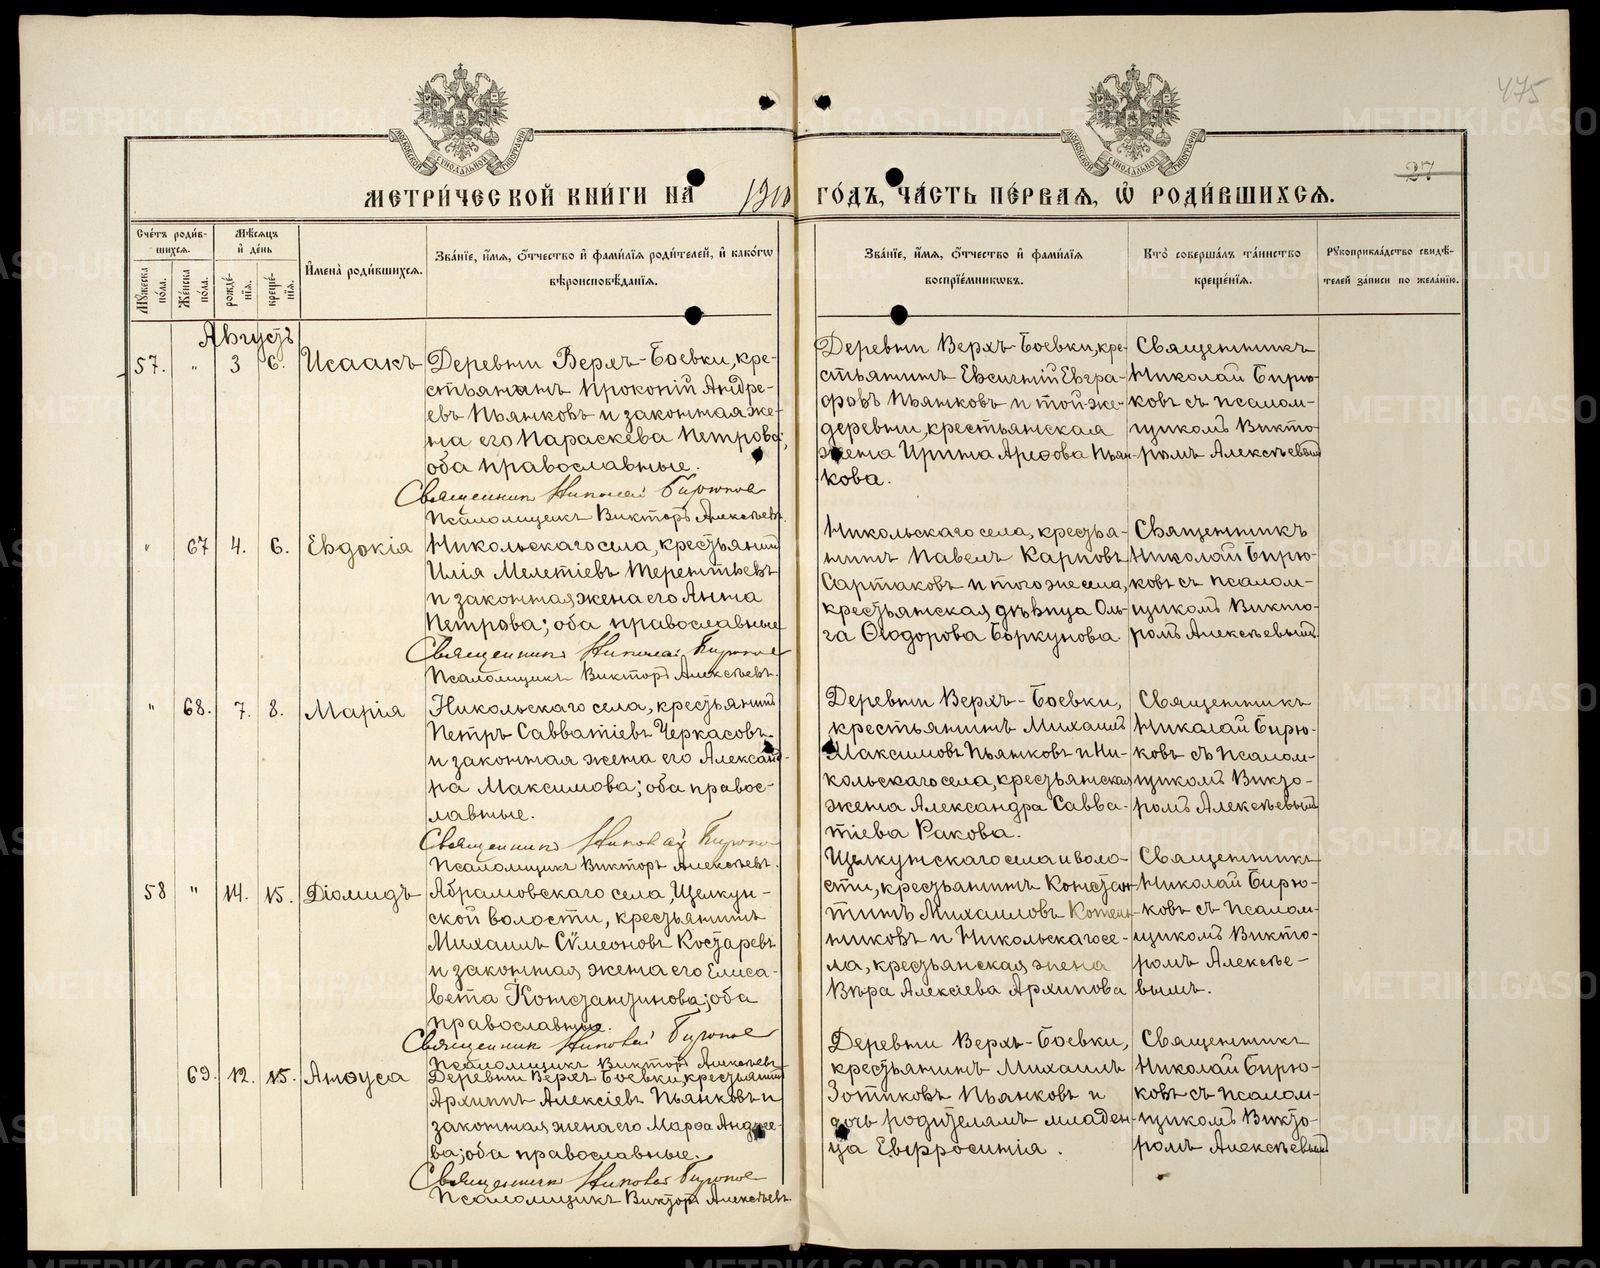 475
27
МЕТРИ́ЧЕСКОЙ КНИ́ГИ НА 1910 ГО́ДЪ, ЧА́СТЬ ПЕ́РВАЯ, Ѽ РОДИ́ВШИХСЯ.
Сче́тъ роди́в-
шихся.
Мѣ́сяцъ
и҆ де́нь
Мꙋ́жеска по́ла.
Же́нска по́ла.
рожде́-
нїя.
креще́-
нїя.
И҆мена̀ роди́вшихся.
Зва́нїе, и҆́мя, ѻ҆́тчество и҆ фами́лїя роди́телей, и҆ како́гѡ
вѣроисповѣ́данїя.
Зва́нїе, и҆́мя, ѻ҆́тчество и҆ фами́лїя
воспрїе́мникѡвъ.
Кто̀ соверша́лъ та́инство
креще́нїя.
Рꙋкоприкла́дство свидѣ́-
телей за́писи по жела́нїю.
Августъ
57. " 3 6. Исаакъ
Деревни Верхъ-Боевки, кре-
стьянинъ Прокопій Андре-
евъ Пьянковъ и законная же-
на его Параскева Петрова;
оба православные.
Священникъ Николай Бирюковъ
Псаломщикъ Викторъ Алексѣевъ.
Деревни Верхъ-Боевки, кре-
стьянинъ Евсигній Евгра-
фовъ Пьянковъ и той-же-
деревни, крестьянская
жена Ирина Арефова Пьян-
кова.
Священникъ
Николай Бирю-
ковъ съ псалом-
щикомъ Викто-
ромъ Алексѣевымъ
" 67 4. 6. Евдокія
Никольскаго села, крестьянинъ
Илія Мелетіевъ Терентьевъ
и законная жена его Анна
Петрова; оба православные
Священникъ Николай Бирюковъ
Псаломщикъ Викторъ Алексѣевъ.
Никольскаго села, крестья-
нинъ Павелъ Карповъ
Сартаковъ и того же села,
крестьянская дѣвица Оль-
га Ѳеодорова Боркунова
Священникъ
Николай Бирю-
ковъ съ псалом-
щикомъ Викто-
ромъ Алексѣевымъ
" 68. 7. 8. Марія
Никольскаго села, крестьянинъ
Петръ Савватіевъ Черкасовъ
и законная жена его Александ-
ра Максимова; оба правос-
лавные.
Священникъ Николай Бирюковъ
Псаломщикъ Викторъ Алексѣевъ.
Деревни Верхъ-Боевки,
крестьянинъ Михаилъ
Максимовъ Пьянковъ и Ни-
кольскаго села, крестьянская
жена Александра Савва-
тіева Ракова.
Священникъ
Николай Бирю-
ковъ съ псалом-
щикомъ Викто-
ромъ Алексѣевымъ
58 " 14. 15. Діомидъ
Абрамовскаго села, Щелкун-
ской волости, крестьянинъ
Михаилъ Сѵмеоновъ Костаревъ
и законная жена его Елиса-
вета Константинова; оба
православные.
Священникъ Николай Бирюковъ
Псаломщикъ Викторъ Алексѣевъ
Щелкунскаго села и воло-
сти, крестьянинъ Констан-
тинъ Михаиловъ Котель-
никовъ и Никольскаго се-
ла, крестьянская жена
Вѣра Алексіева Архипова
Священникъ
Николай Бирю-
ковъ съ псалом-
щикомъ Викто-
ромъ Алексѣе-
вымъ.
69. 12. 15. Анѳуса
Деревни Верхъ-Боевки, крестьянинъ
Архиппъ Алексіевъ Пьянковъ и
законная жена его Марѳа Андрее-
ва; оба православные.
Священникъ Николай Бирюковъ
Псаломщикъ Викторъ Алексѣевъ.
Деревни Верхъ-Боевки,
крестьянинъ Михаилъ
Зотиковъ Пьянковъ и
дочь родителямъ младен-
ца Евфросинія.
Священникъ
Николай Бирю-
ковъ съ псалом-
щикомъ Викто-
ромъ Алексѣевымъ